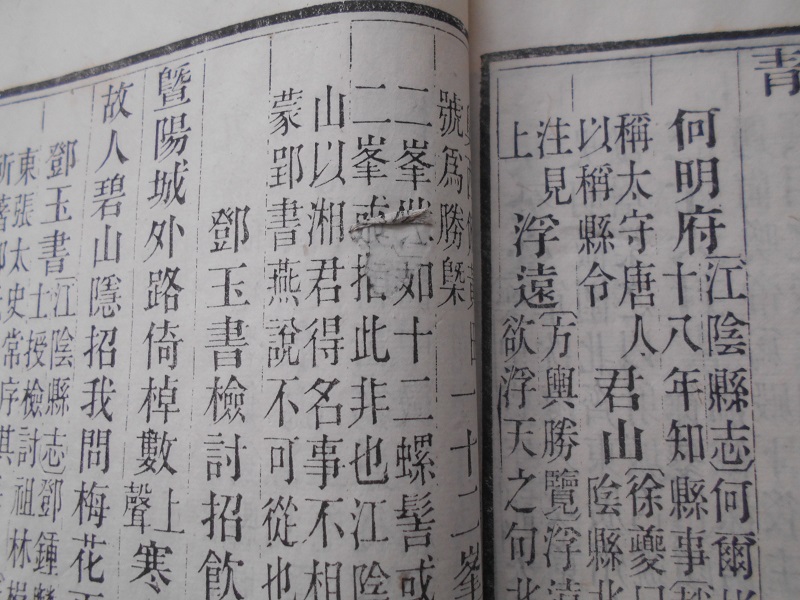 青
何明府〔江陰縣志〕何爾
十八年知縣事〔
稱太守唐人
以稱縣令
君山〔徐夔曰
陰縣北
注見
上
浮遠〔方輿勝覽〕浮遠
欲浮天之句北
十二峯
號爲勝槩
二峯
如十二螺髻或
二峯
此非也江陰
山以湘君得名事不相
蒙郢書燕說不可從也
鄧玉書檢討招飲
曁陽城外路倚棹數上聲寒
故人碧山隱招我問梅花
鄧玉書〔江陰縣志〕鄧鍾
士授檢討祖林
東張太史常序其
所著